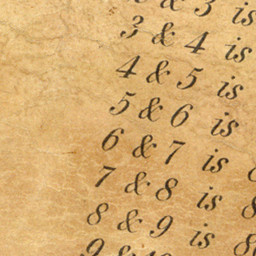 & 3 is
3 & 4 is
4 & 5 is
5 & 6 is
6 & 7 is
7 & 8 is
8 & 9 is
9 & 10